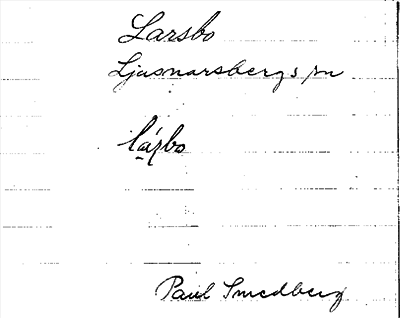 Larsbo
Ljusnarsbergs sn
lárbo
Paul Smedberg